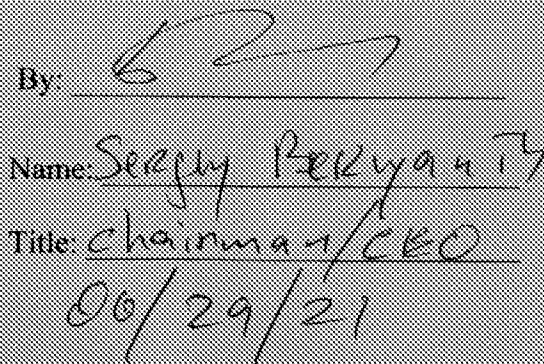 By:
Name: Sergey
Title: Chairman/CEO
06/29/21